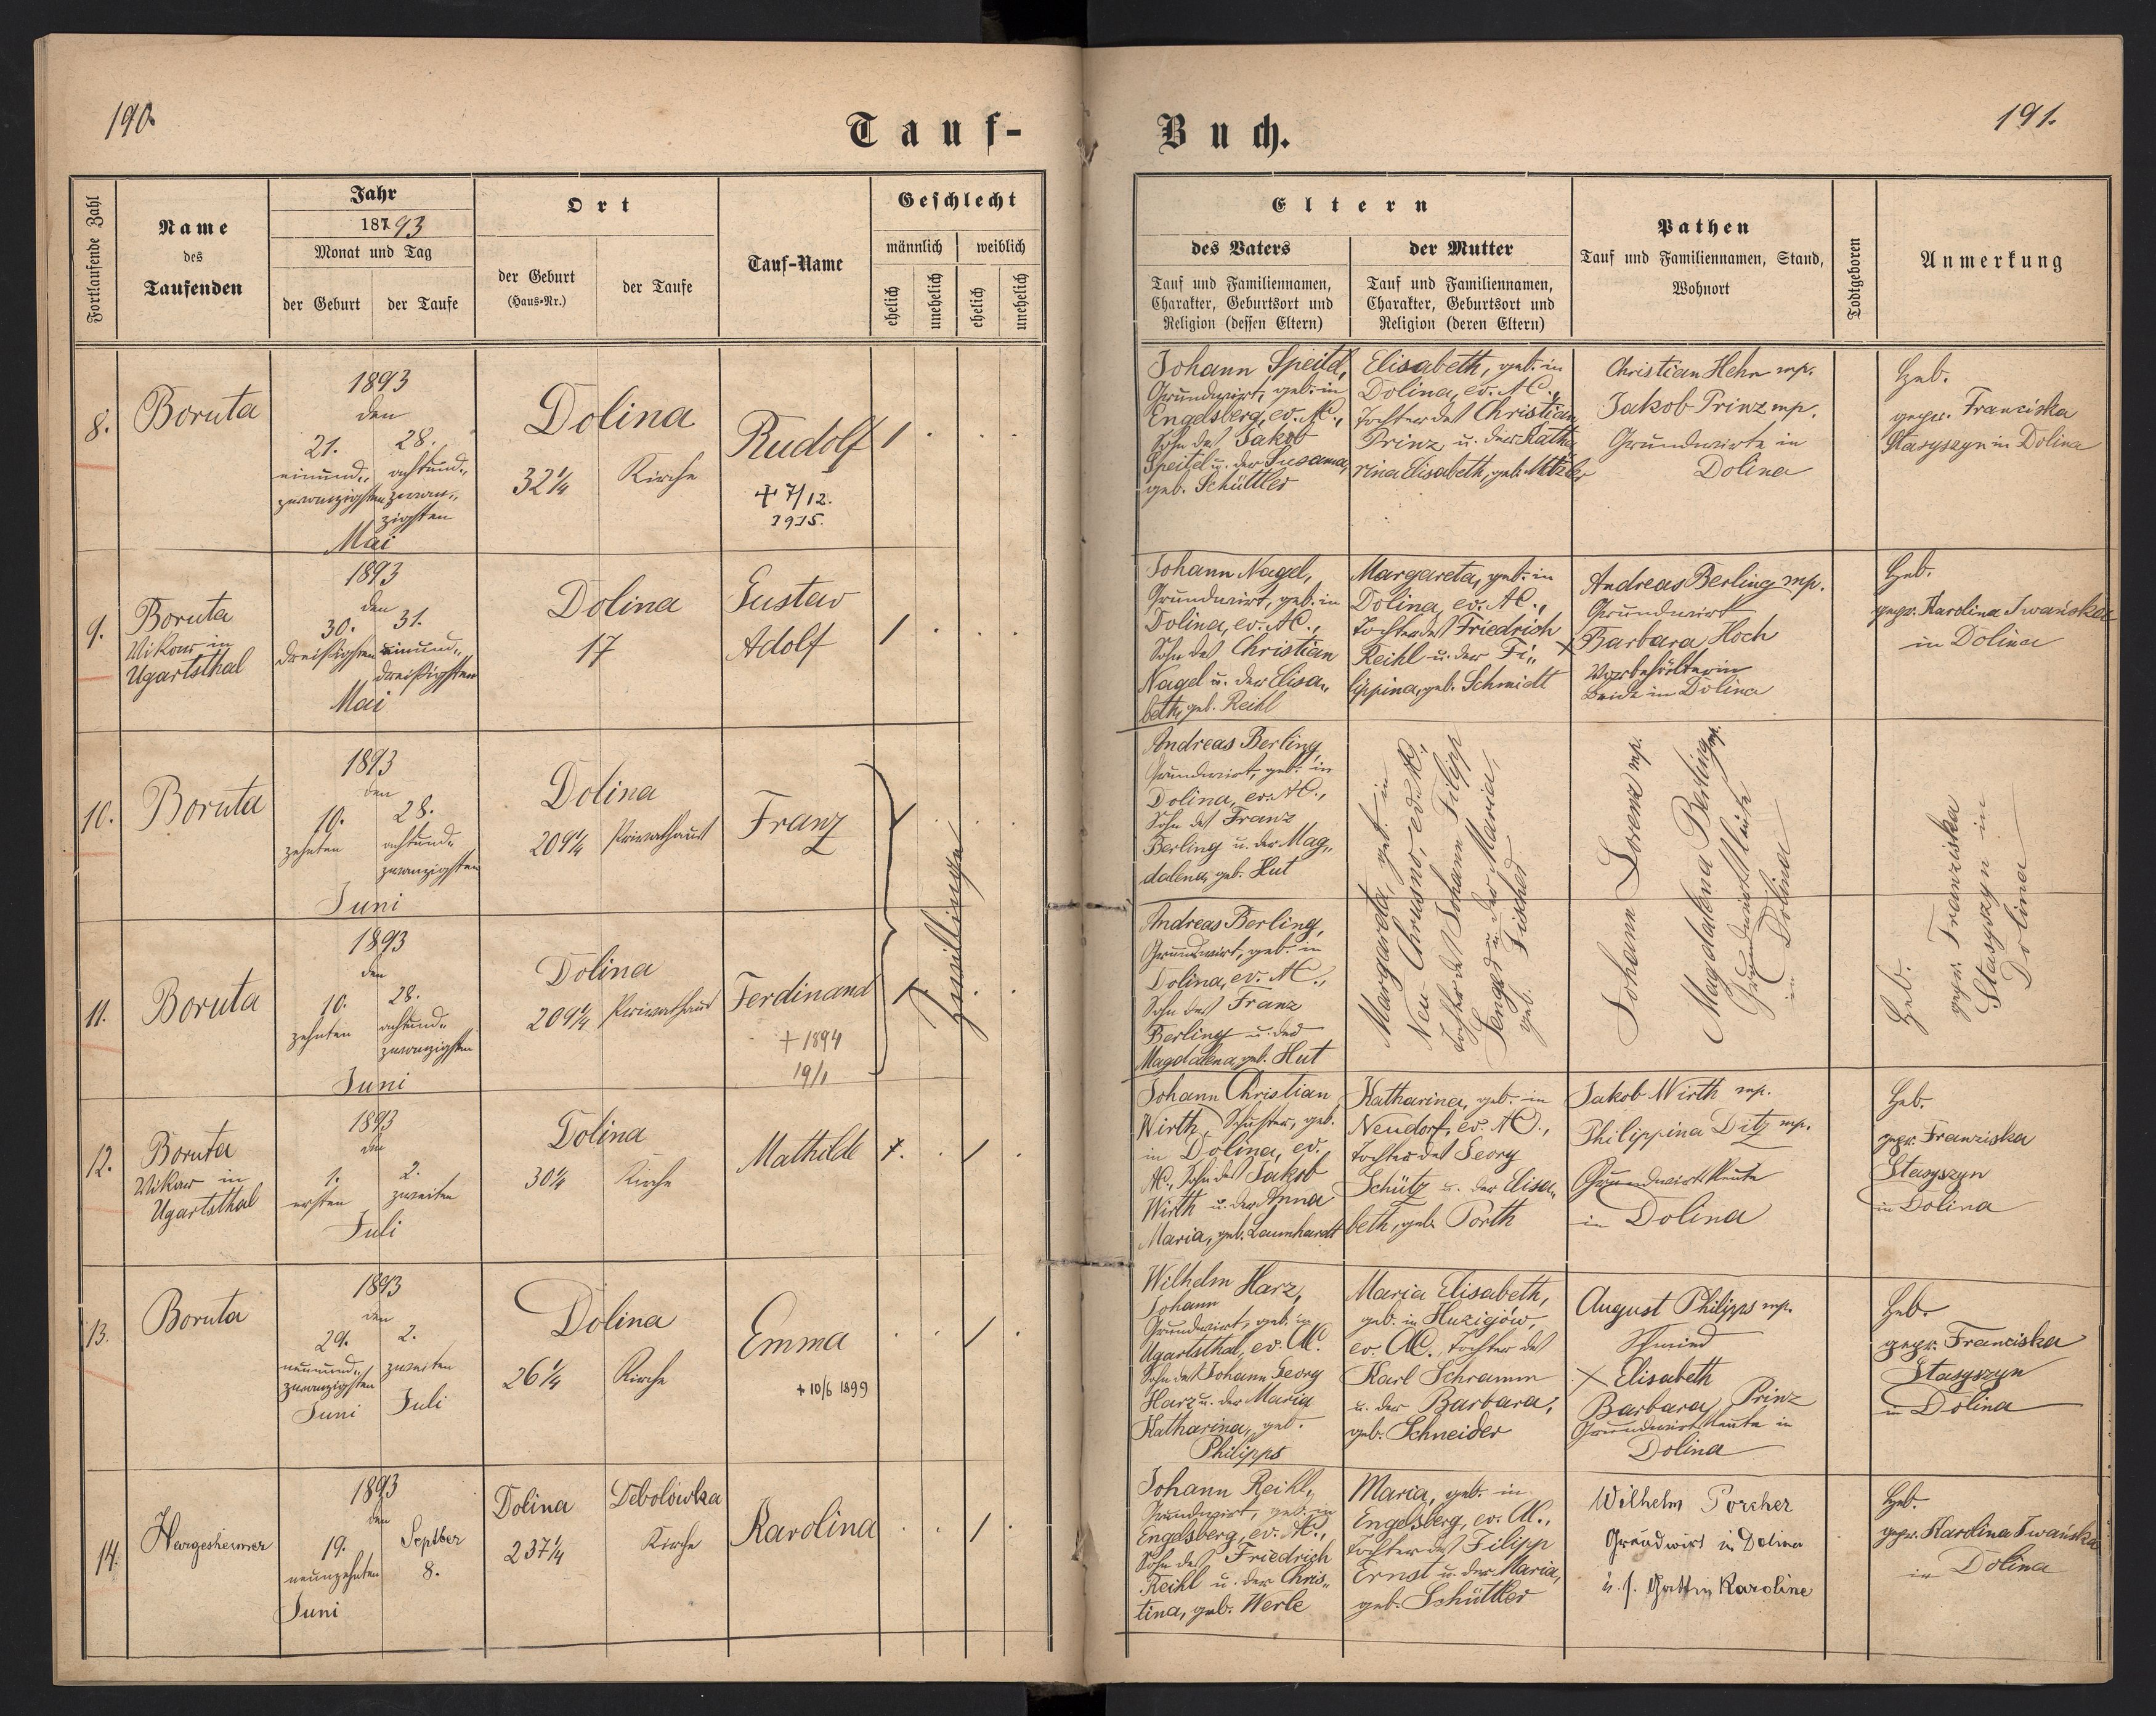 190.
Tauf-
Fortlaufende Zahl
Name
des
Taufenden
Jahr
18793
Monat und Tag
der Geburt
der Taufe
Ort
der Geburt
(Haus-Nr.)
der Taufe
Tauf-Name
Geschlecht
männlich
weiblich
ehelich
unehelich
ehelich
unehelich
8.
Boruta
1893
den
21. 28.
einund„ achtund„
zwanzigsten zwan„
zigsten
Mai
Dolina
32 1/4
Kirche
Rudolf
+ 7/12.
1915.
1 . . .
9.
Boruta
Vikar in
Ugartsthal
1893
den
30. 31.
dreißigsten einund„
dreißigsten
Mai
Dolina
17
Gustav
Adolf
1 . . .
10.
Boruta
1893
den
10. 28.
zehnten achtund„
zwanzigsten
Juni
Dolina
209 1/4
Privathaus
Franz
1 . . .
Zwillinge
11.
Boruta
1893
den
10. 28.
zehnten achtund„
zwanzigsten
Juni
Dolina
209 1/4
Privathaus
Ferdinand
+ 1894
19/1
1 . . .
12.
Boruta
Vikar in
Ugartsthal
1893
den
1. 2.
ersten zweiten
Juli
Dolina
30 1/4
Kirche
Mathilde
. 1 .
13.
Boruta
1893
den
29. 2.
neunund„ zweiten
zwanzigsten
Juni Juli
Dolina
26 1/4
Kirche
Emma
+ 10/6 1899
. . 1 .
14.
Hargesheimer
1893
den
19. Septber
neunzehnten 8.
Juni
Dolina
237 1/4
Debolówka
Kirche
Karolina
. . 1 .
191.
Buch.
Eltern
des Vaters
Tauf und Familiennamen,
Charakter, Geburtsort und
Religion (dessen Eltern)
der Mutter
Tauf und Familiennamen,
Charakter, Geburtsort und
Religion (deren Eltern)
Pathen
Tauf und Familiennamen, Stand,
Wohnort
Todtgeboren
Anmerkung
Johann Speitel,
Grundwirt, geb. in
Engelsberg, ev. AC.,
Sohn des Jakob
Speitel u. der Susanna,
geb. Schüttler
Elisabeth, geb. in
Dolina, ev. AC.,
Tochter des Christian
Prinz u. der Katha
rina Elisabeth, geb.
Christian Hehn mp.
Jakob Prinz mp.
Grundwirte in
Dolina
Heb.
gepr. Franciska
Stasyszyn in Dolina
Johann Nagel,
Grundwirt, geb. in
Dolina, ev. AC.,
Sohn des Christian
Nagel u. der Elisa„
beth, geb. Reihl
Margareta, geb. in
Dolina, ev. AC.,
Tochter des Friedrich
Reihl u. der Fi„
lippina, geb. Schmidt
Andreas Berling mp.
Grundwirt
X Barbara Hoch
Vorbehälterin
beide in Dolina
Heb.
gepr. Karolina Iwańska
in Dolina
Andreas Berling,
Grundwirt, geb. in
Dolina, ev. AC.,
Sohn des Franz
Berling u. der Mag„
dalena, geb. Hut
Margareta, geb. in
Neu-Chrusno, ev. AC.,
Tochter des Johann Filipp
Senger u. der Maria,
geb. Fischer
Johann Lorenz mp.
Magdalena Berling mp.
Grundwirtsleute
in Dolina
Heb.
gepr. Franziska
Stasyszyn in
Dolina
Andreas Berling,
Grundwirt, geb. in
Dolina, ev. AC.,
Sohn des Franz
Berling u. der
Magdalena, geb. Hut
Johann Christian
Wirth, Schuster, geb.
in Dolina, ev.
AC., Sohn des Jakob
Wirth u. der Anna
Maria, geb. Launhardt
Katharina, geb. in
Neudorf, ev. AC.,
Tochter des Georg
Schütz u. der Elisa„
beth, geb. Porth
Jakob Wirth mp.
Philippina Ditz mp.
Grundwirtsleute
in Dolina
Heb.
gepr. Franziska
Stasyszyn
in Dolina
Wilhelm Harz,
Johann
Grundwirt, geb. in
Ugartsthal, ev. AC.
Sohn des Johann Georg
Harz u. der Maria
Katharina, geb.
Philipps
Maria Elisabeth,
geb. in Huzigów,
ev. AC. Tochter des
Karl Schramm
u. der Barbara,
geb. Schneider
August Philipps mp.
Schmied
X Elisabeth
Barbara Prinz
Grundwirtsleute in
Dolina
Heb.
gepr. Franciska
Stasyszyn
in Dolina
Johann Reihl,
Grundwirt, geb. in
Engelsberg, ev. AC.,
Sohn des Friedrich
Reihl u. der Chris„
tina, geb. Werle
Maria, geb. in
Engelsberg, ev. AC.,
Tochter des Filipp
Ernst u. der Maria,
geb. Schüttler
Wilhelm Porcher
Grundwirt in Dolina
u. s. Gattin Karoline
Heb.
gepr. Karolina Iwańska
in Dolina